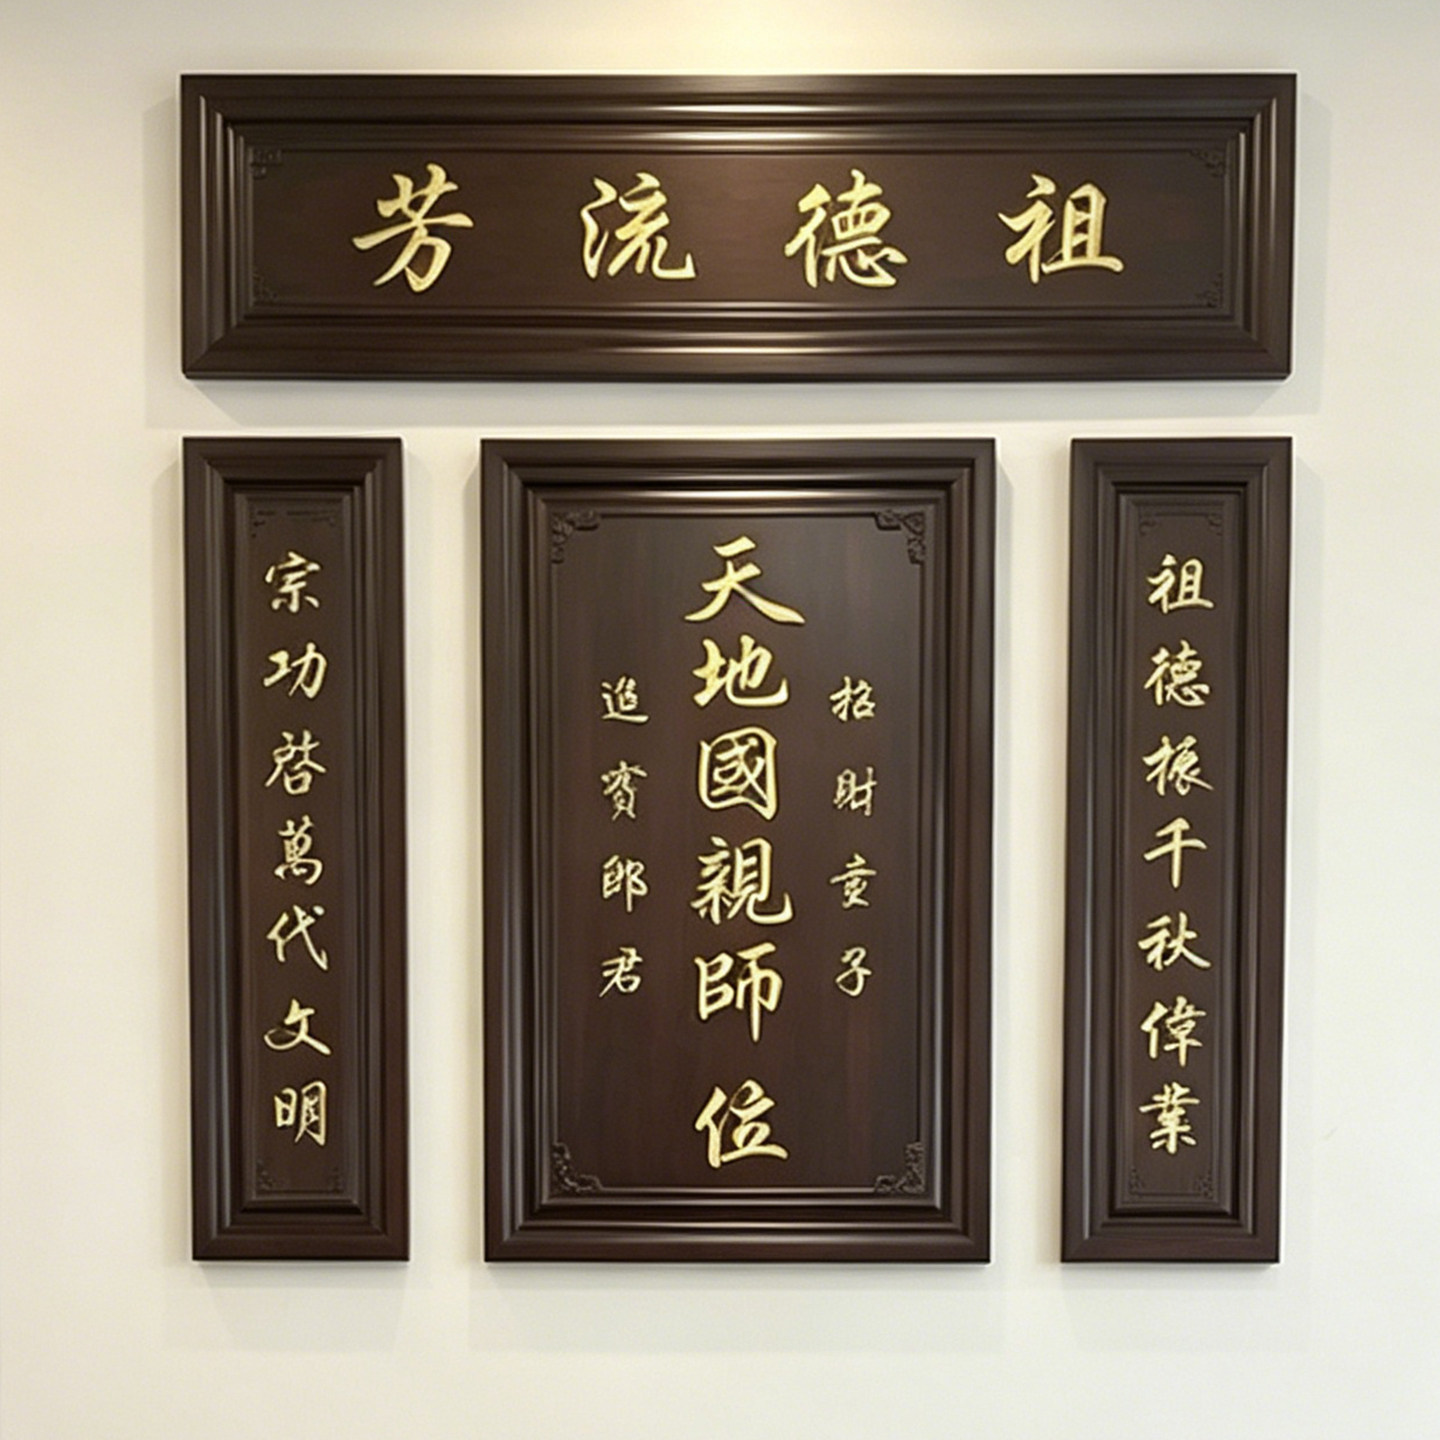 祖德流芳
祖德振千秋偉業
招財童子
天地國親師位
進寶郎君
宗功啓萬代文明